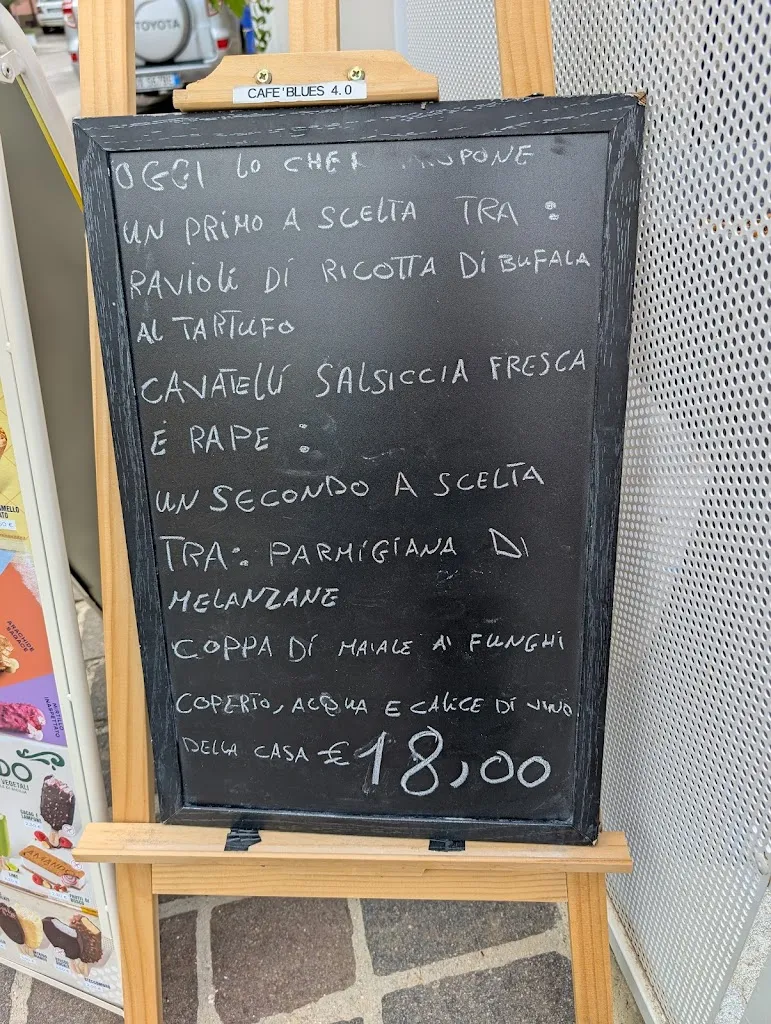 TOYOTA
CAFE'BLUES 4.0
OGGI LO CHEF PROPONE
UN PRIMO A SCELTA TRA :
RAVIOLI DI RICOTTA DI BUFALA
AL TARTUFO
CAVATELLI SALSICCIA FRESCA
E RAPE :
UN SECONDO A SCELTA
TRA: PARMIGIANA DI
MELANZANE
COPPA DI MAIALE AI FUNGHI
COPERTO, ACQUA E CALICE DI VINO
DELLA CASA € 18,00
ARACHIDE
VEGETALI